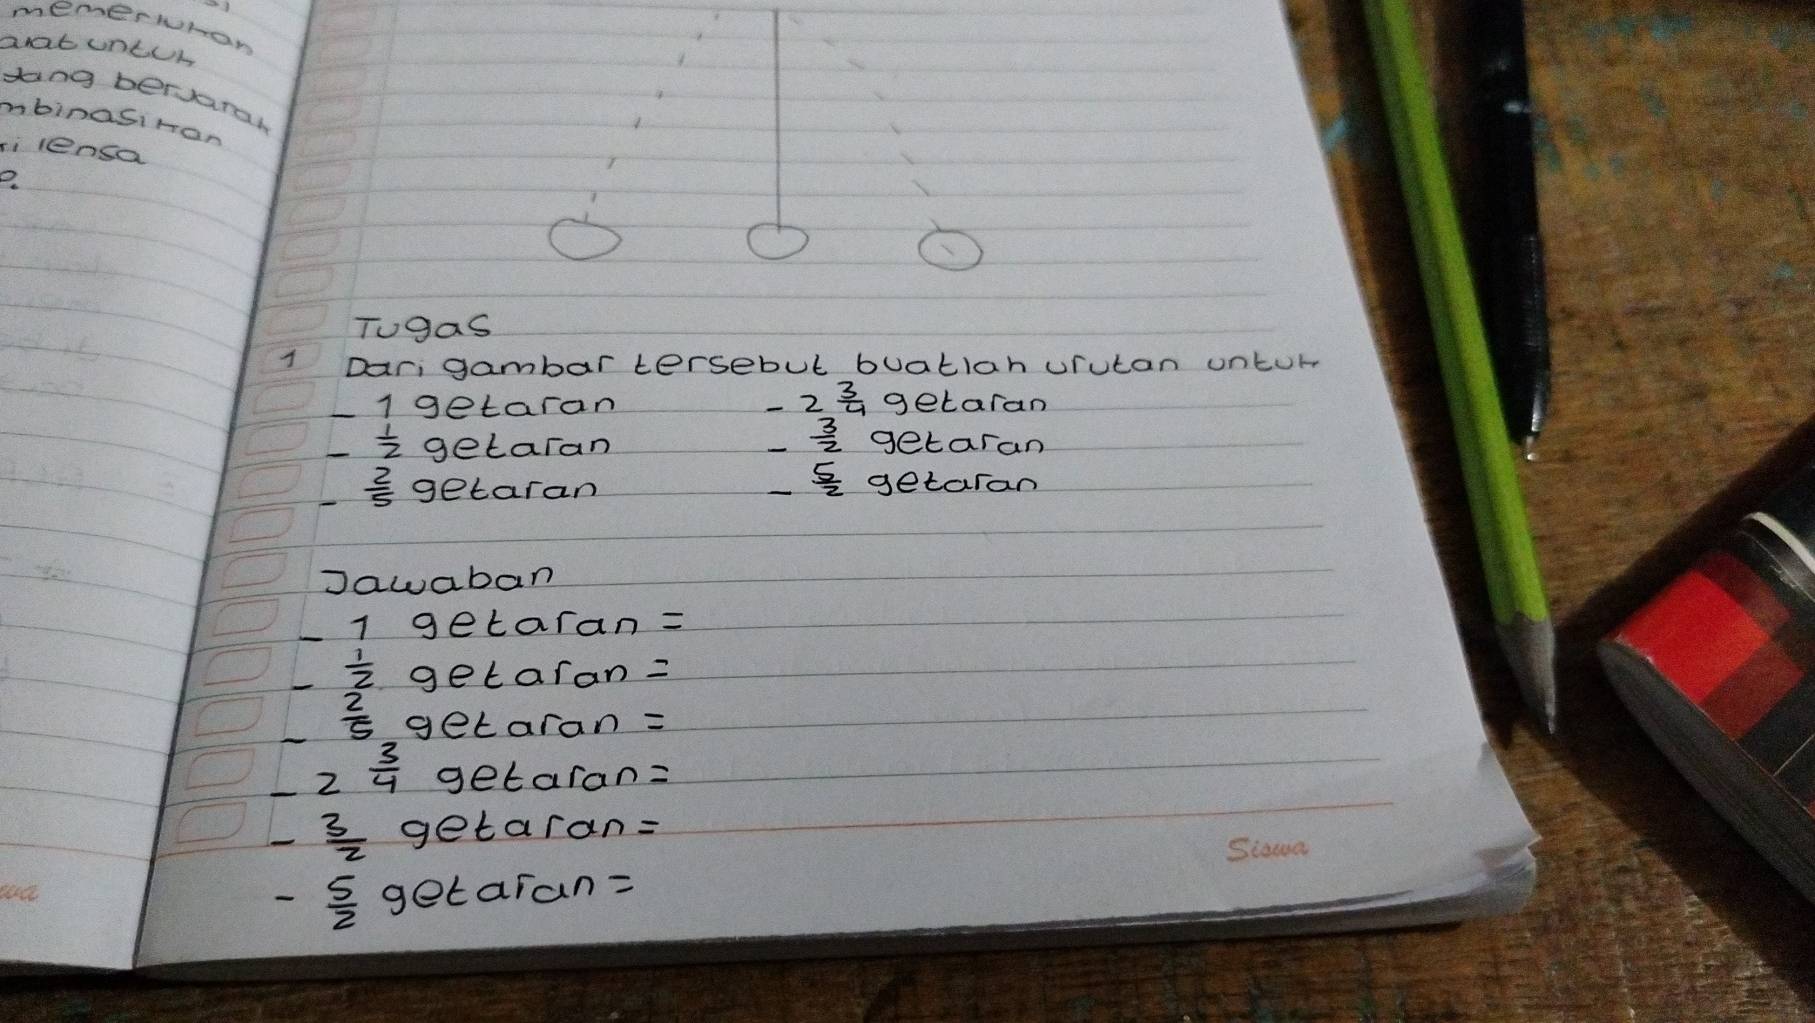 memerlukan
alat untuk
yang berjarak
mbinasikan
ri lensa
e.
Tugas
1 Dari gambar tersebut buatlah urutan untuk
- 1 getaran - 2 3/4 getaran
- 1/2 getaran - 3/2 getaran
- 2/5 getaran - 5/2 getaran
Jawaban
- 1 getaran =
- 1/2 getaran =
- 2/5 getaran =
- 2 3/4 getaran =
- 3/2 getaran =
- 5/2 getaran =
Siswa
wa